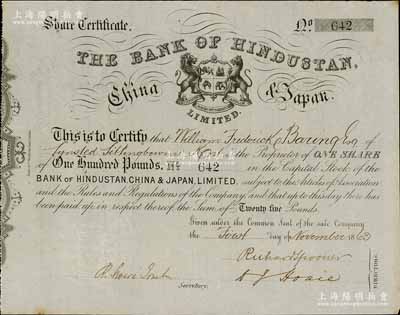 上海陽明拍賣
Share Certificate.
No 642
THE BANK OF HINDUSTAN,
China & Japan.
LIMITED.
This is to Certify that William Frederick Baring Esq of
Kent is the Proprietor of ONE SHARE
of One Hundred Pounds, No 642 in the Capital Stock of the
BANK OF HINDUSTAN, CHINA & JAPAN, LIMITED, subject to the Articles of Association
and the Rules and Regulations of the Company and that up to this day there has
been paid up in respect thereof the Sum of Twenty five Pounds.
Given under the Common Seal of the said Company
the First day of November 1863
Richard Spooner
Secretary.
DIRECTORS.
上海陽明拍賣